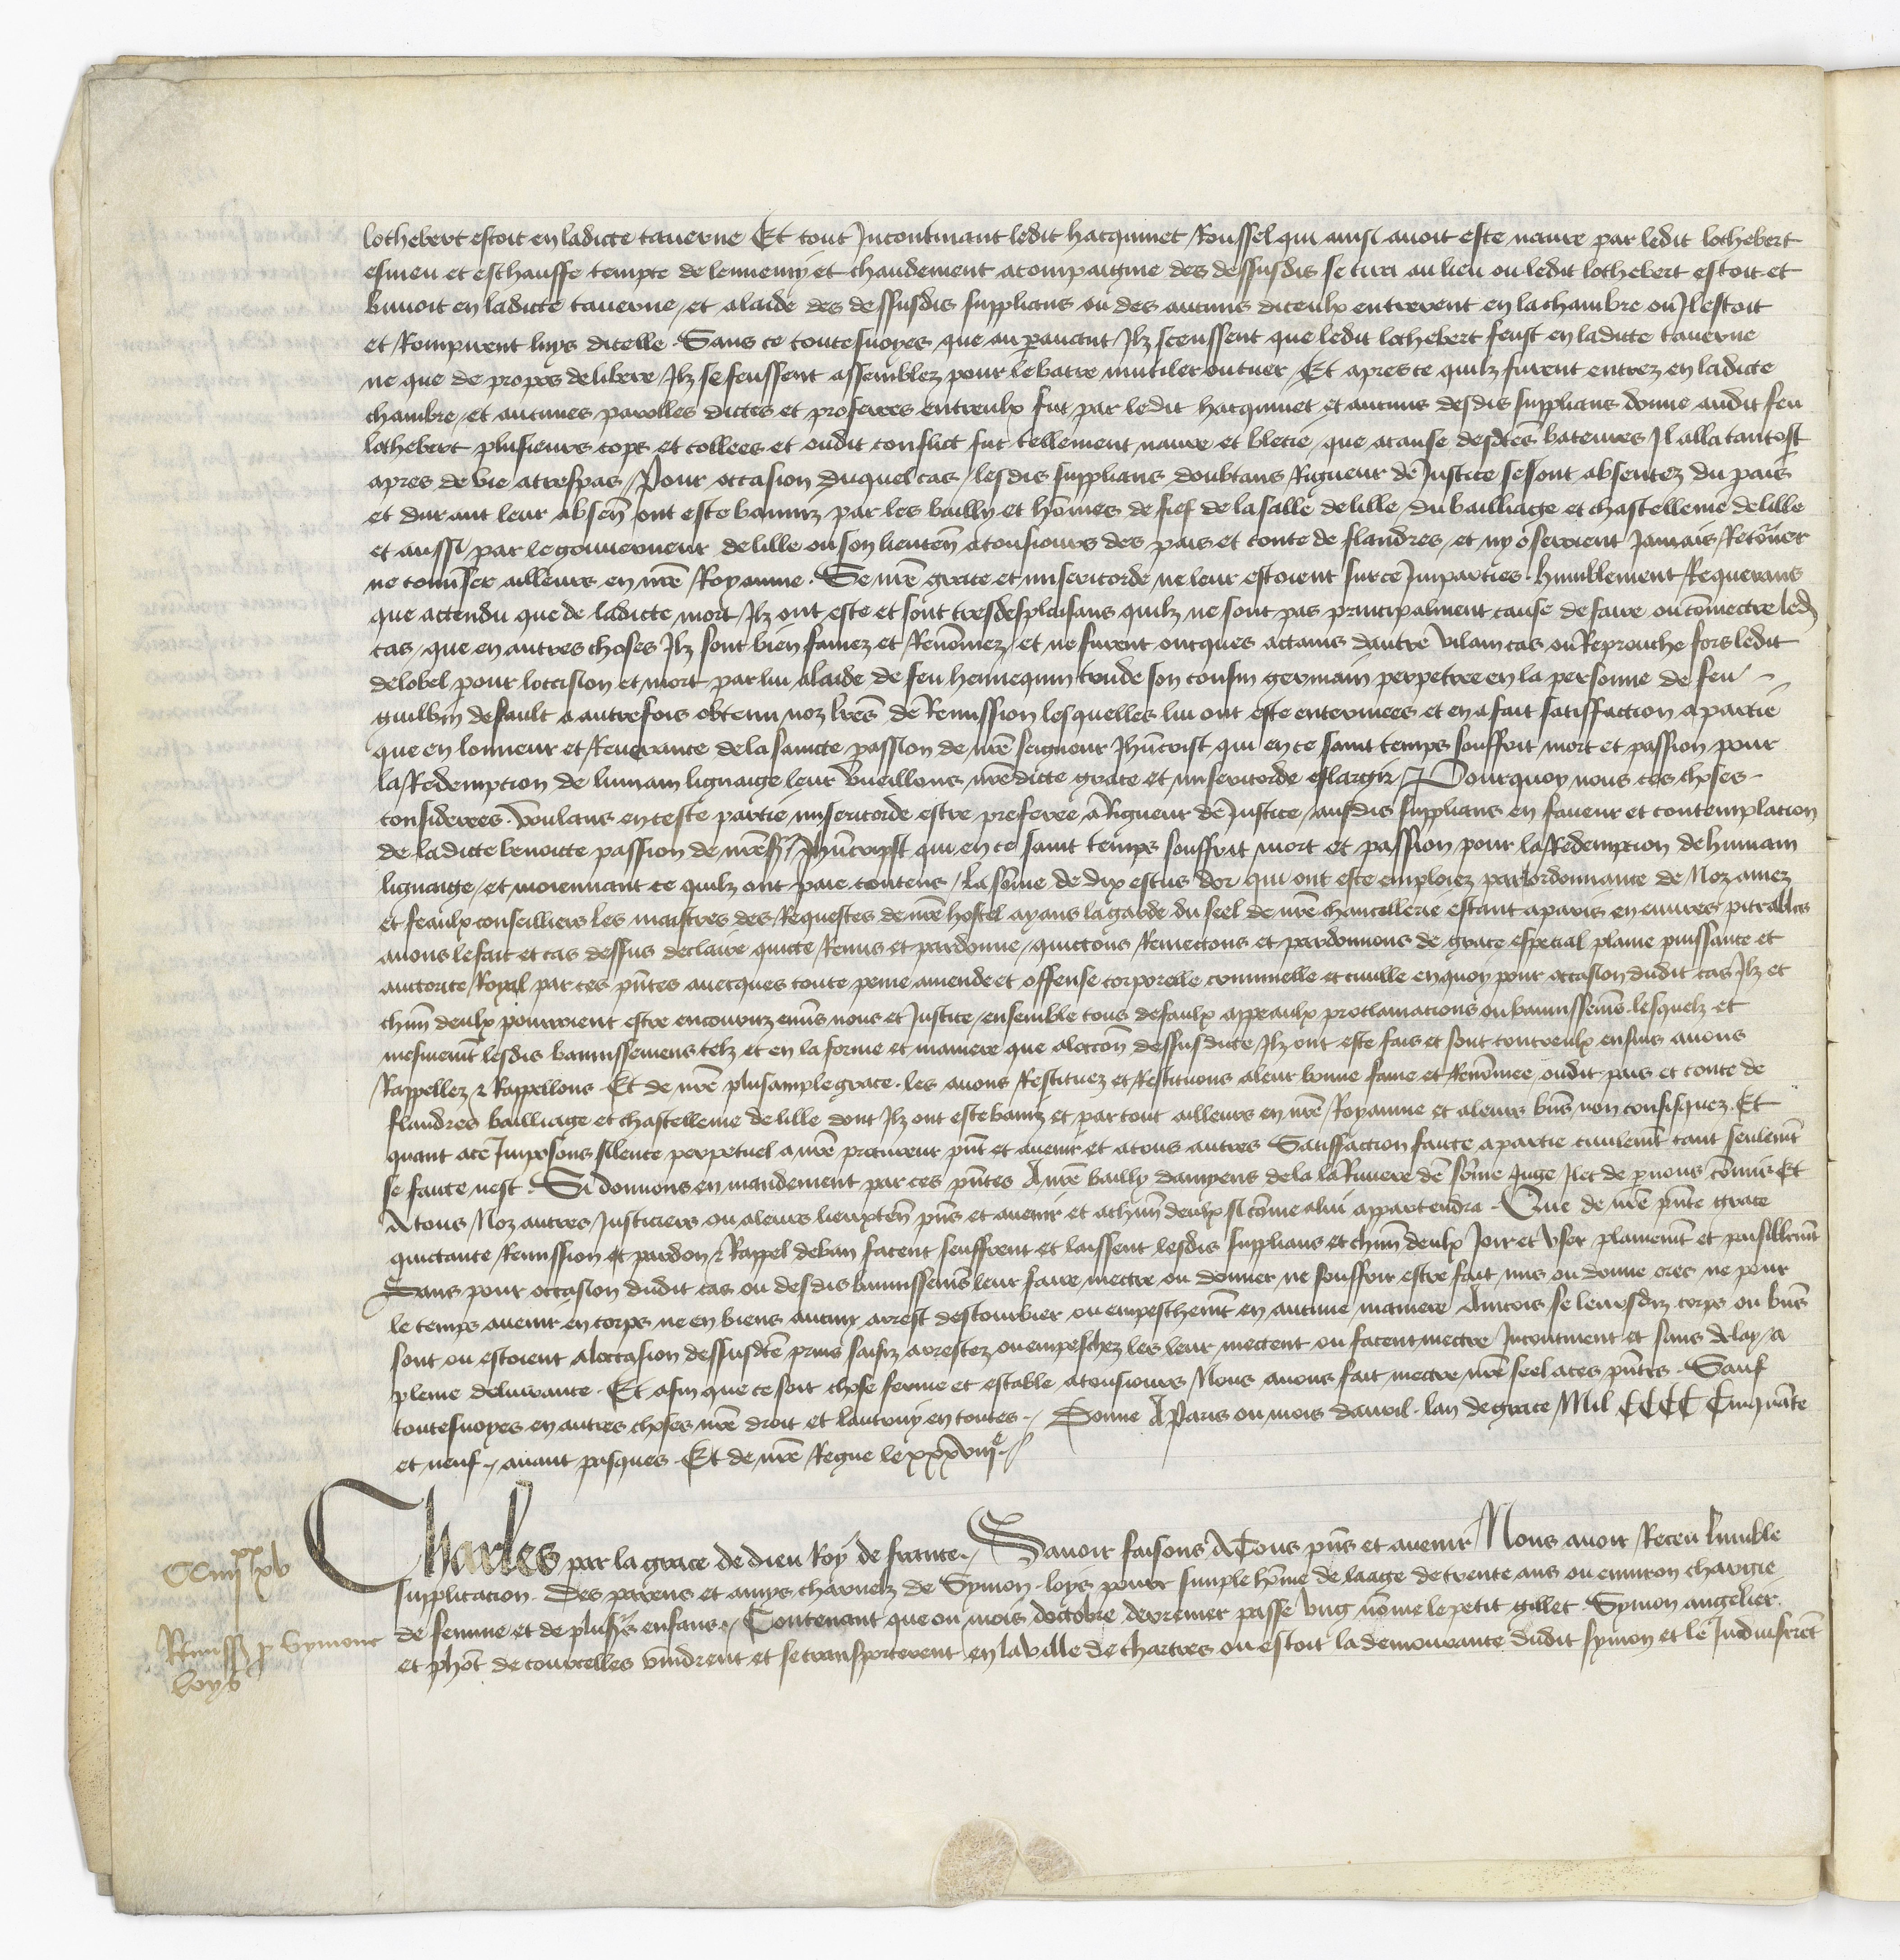 lothebert estoit en ladicte taverne Et tout Incontinant ledit hacquinet Roussel qui ainsi avoit este navre par ledit lothebert
esmeu et eschauffe tempte de lennemy et chaudement acompaigne des dessusdis se tira au lieu ou ledit lothebert estoit et
buvoit en ladicte taverne / et alaide des dessusdis supplians ou des aucuns diceulx entrerent en la chambre ou Il estoit
et Rompirent luys dicelle . Sans ce toutesuoyes que au pauant Ilz sceussent que ledit lothebert feust en ladicte taverne
ne que de propos delibere Ilz se feussent assemblez pour le batre mutiler ou tuer / Et apres ce quilz furent entrez en ladicte
chambre / et aucunes parolles dictes et proferees entreulx fut par ledit hacquinet et aucuns desdis supplians donne audit feu
lothebert plusieurs cops et collees et oudit conflict fut tellement navre et blecie / que acause desdtes bateures Il alla tantost
apres de vie a trespas / Pour occasion duquel cas / lesdis supplians doubtans Rigueur de Justice se sont absentez du pais
et durant leur absen ont este banniz par les bailly et homes de fief de la salle de lille / du bailliage et chastellenie de lille
et aussi par le gouverneur de lille ou son lieuten a tousiours des pais et conte de flandres / et ny oseroient Jamais Retourner
ne conuser ailleurs en nre Royaume . Se nre grace et misericorde ne leur estoient sur ce Imparties . humblement Requerans
que actendu que de ladicte mort Ilz ont este et sont tresdesplaisans quilz ne sont pas principalment cause de faire ou comectre led
cas / que en autres choses Ilz sont bien famez et Renomez / et ne furent oncques actains dautre vilain cas ou Reprouche fors ledit
delobel pour loccision et mort par lui alaide de feu hennequin son cousin germain perpetree en la personne de feu
guilbin desault a autrefois obtenu noz lres de Remission lesquelles lui ont este enterinees et en a fait satiffaction a partie
que en lonneur et Reverance de la saincte passion de nre seigneur Jhucrist qui en ce saint temps souffrit mort et passion pour
la Redemption de lumain lignaige leur vueillons nredicte grace et misericorde eslargir / Pourquoy nous ces choses
considerees . voulans en ceste partie misericorde estre preferee a Rigueur de Justice / ausdis supplians en faveur et contemplacion
de ladicte benoicte passion de nre sr Jhucrist qui en ce saint temps souffrit mort et passion pour la Redemption de humain
lignaige / et moiennant ce quilz ont paie contens / la some de dix escus dor qui ont este emploiez par lordonnance de Noz amez
et feaulx conseilliers les maistres des Requestes de nre hostel ayans la garde du seel de nre chancellerie estant a paris en euvres pitables
avons le fait et cas dessus declaire quicte Remis et pardonne / quictons Remectons et pardonnons de grace especial plaine puissance et
auctorite Royal par ces pntes avecques toute peine amende et offense corporelle criminelle et civille en quoy pour occasion dudit cas Ilz et
chun deulx pourroient estre encouruz envs nous et Justice / ensemble tous defaulx appeaulx proclamations ou bannissems lesquelz et
mesmemt lesdis bannissemens telz et en la forme et maniere que aloccon dessusdicte Ilz ont este fais et sont contreulx ensuis avons
Rappellez & Rappellons . Et de nre plus ample grace . les avons Restituez et Restituons a leur bonne fame et Renomee oudit pais et conte de
flandres bailliage et chastellenie de lille dont Ilz ont este baniz et par tout ailleurs en nre Royaume et a leurs bns non confisquez . Et
quant ace Imposons silence perpetuel a nre procureur pnt et avenir et a tous autres Satiffaction faicte a partie civilemt tant seulemt
se faicte nest . Si donnons en mandement par ces pntes A nre bailly damyens de la la Riviere de some Juge Ilec de p nous comis Et
A tous Noz autres Justiciers ou a leurs lieuxten pns et avenir et achun deulx si come a lui appartendra . Que de nre pnte grace
quictance Remission et pardon & Rappel de ban facent seuffrent et laissent lesdis supplians et chun deulx Joir et vser plainemt et paisiblemt
Sans pour occasion dudit cas ou desdis bannissems leur faire mectre ou donner ne souffrir estre fait mis ou donne ores ne pour
le temps avenir en corps ne en biens aucun arrest destourbier ou empeschemt en aucune maniere Aincois se leursdiz corps ou bns
sont ou estoient aloccasion dessusdte prins saisiz arrestez ou empeschez les leur mectent ou facent mectre Incontinent et sans delay a
pleine delivrance . Et afin que ce soit chose ferme et estable a tousiours Nous avons fait mectre nre seel a ces pntes . Sauf
toutesuoyes en autres choses nre droit et lautruy en toutes . / Donne A Paris ou mois davril . lan de grace Mil CCCC Cinquate
et neuf . / avant pasques . Et de nre Regne le xxxviiie . //
CCiiijxxxv
Remiss p Symone
loys
Charles par la grace de dieu Roy de france . / Savoir faisons A Tous pns et avenir Nous avoir Receu lumble
supplicacion . Des parens et amys charnelz de Symon loys povre simple home de laage de trente ans ou environ chargie
de femme et de plusrs enfans . / Contenant que ou mois doctobre derrenier passe vng nome le petit gillet . Symon angelier
et phot de courcelles vindrent et se transporterent en la ville de chartres ou estoit la demourance dudit symon et le landuiscret